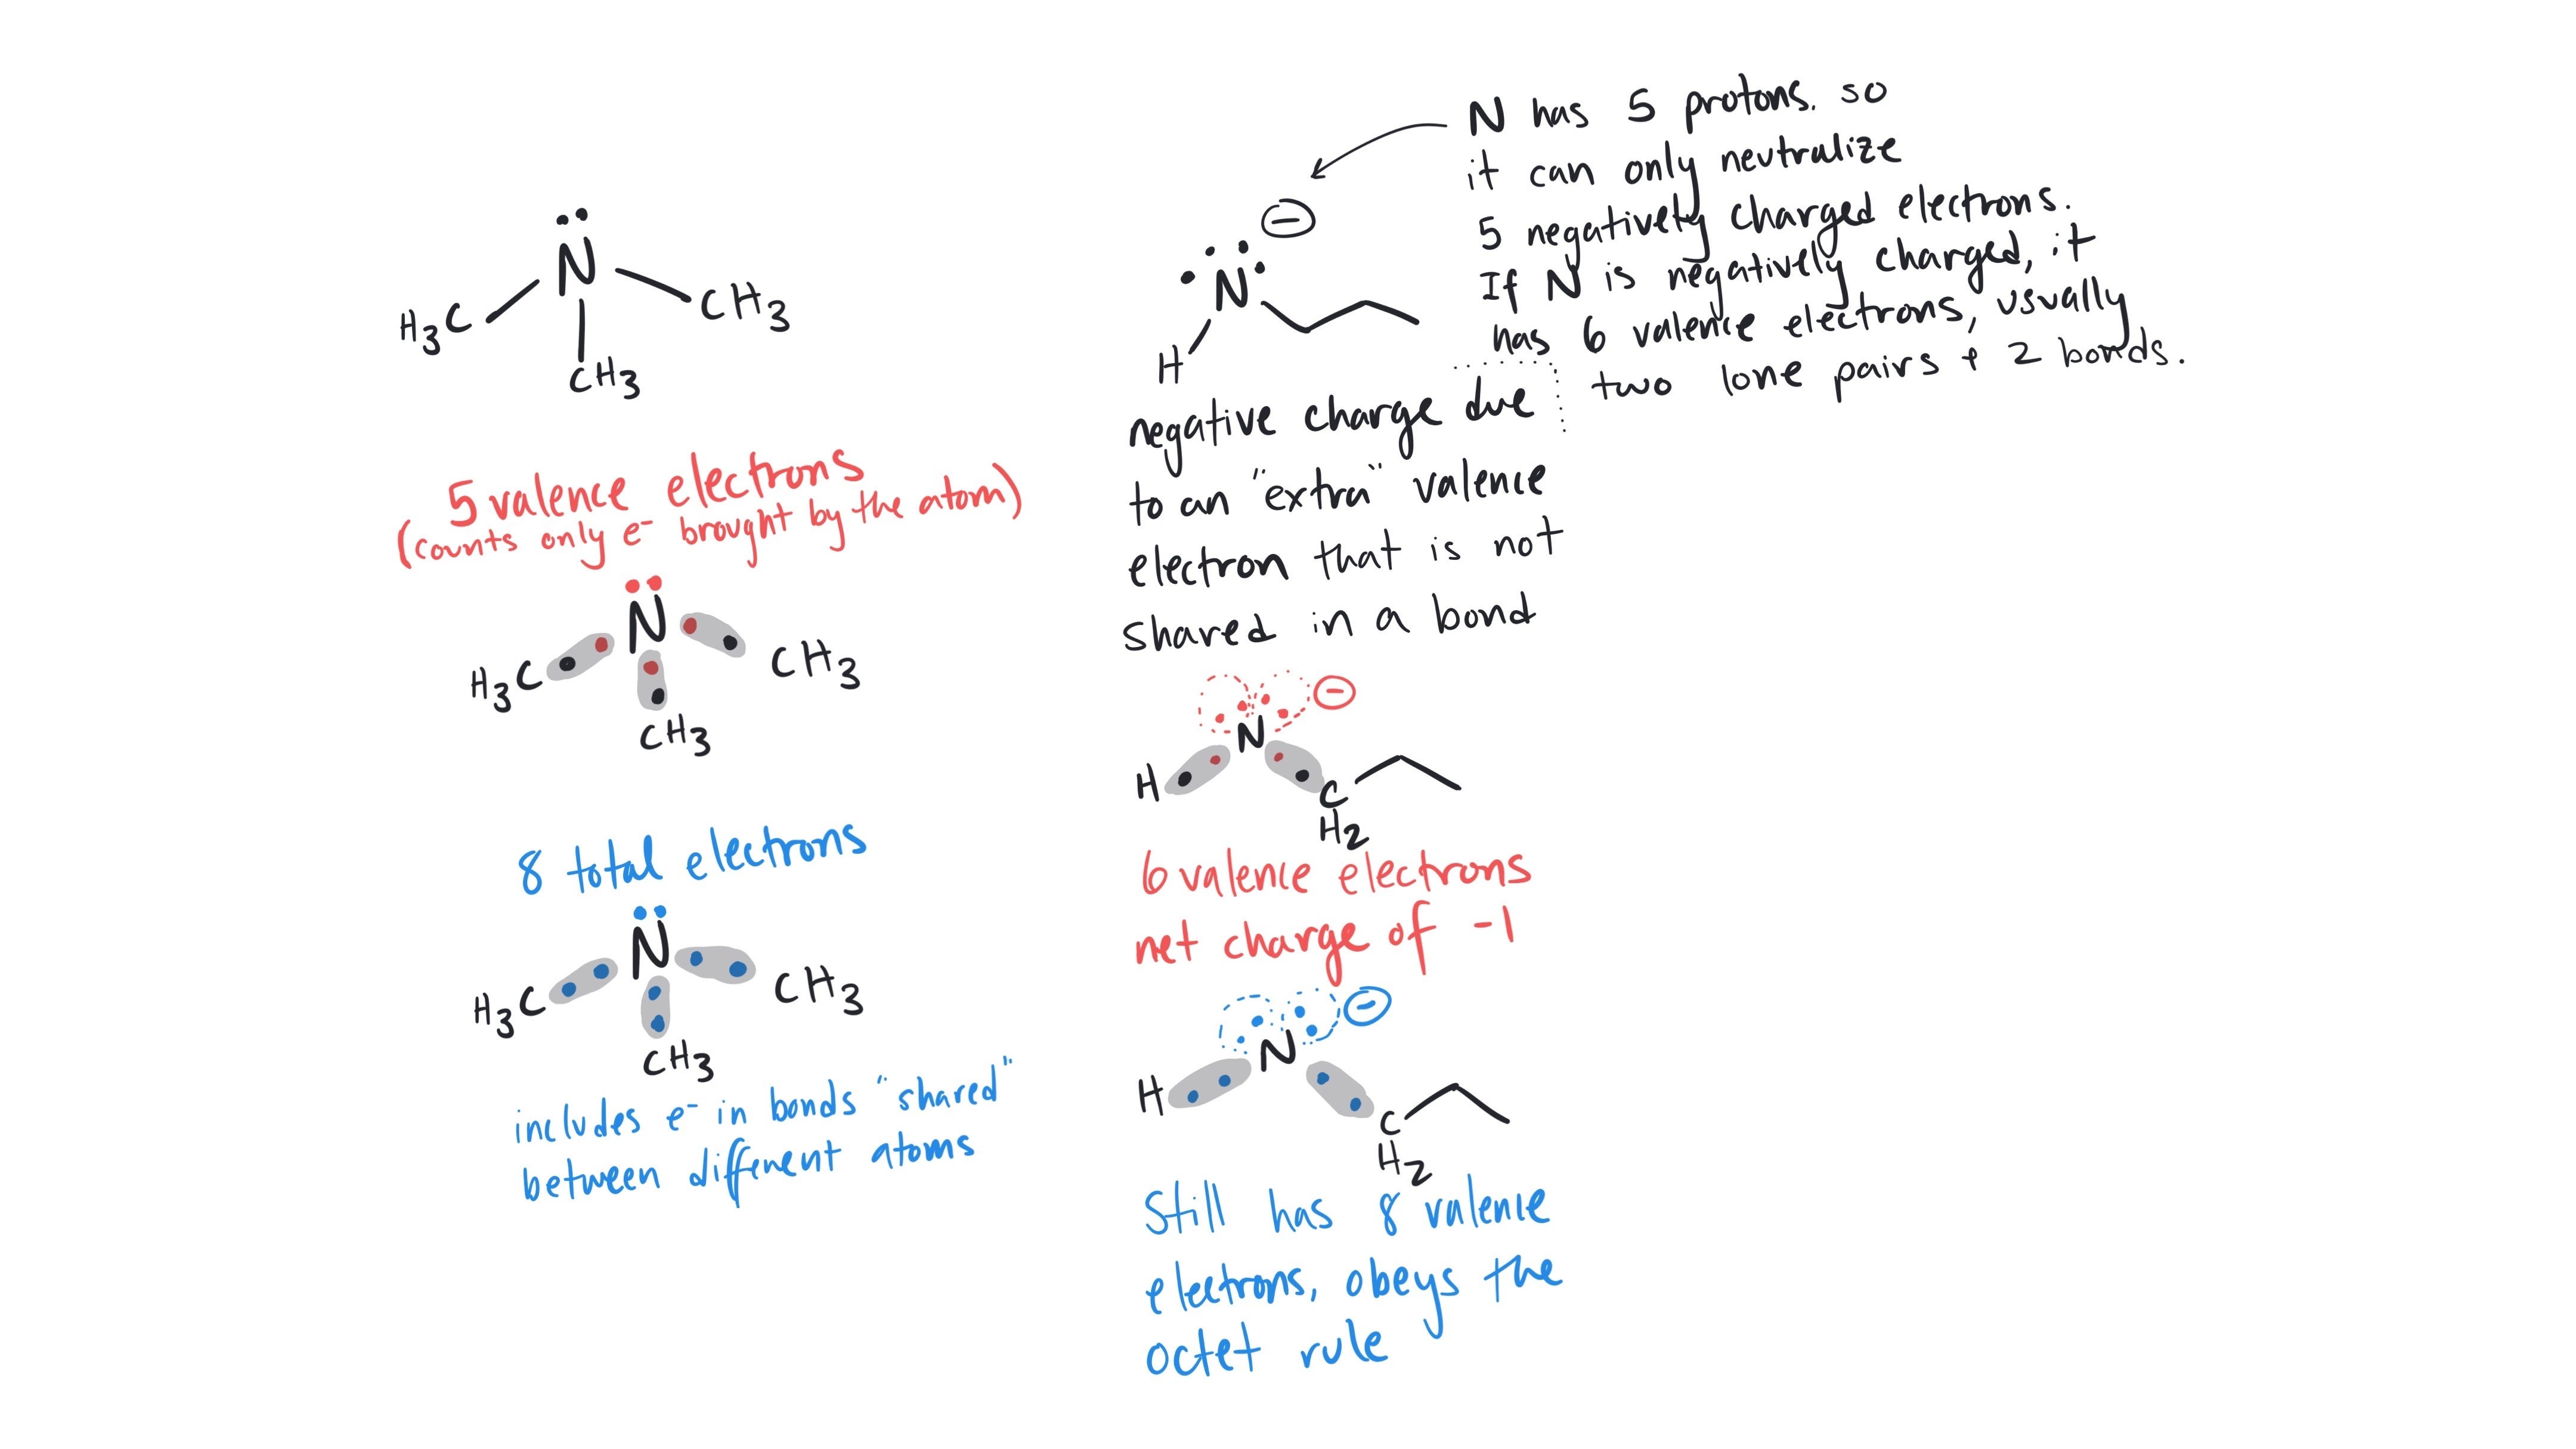 N
H3C
CH3
CH3
5 valence electrons
(counts only e- brought by the atom)
N
H3C
CH3
CH3
8 total electrons
N
H3C
CH3
CH3
includes e- in bonds "shared"
between different atoms
N has 5 protons. so
it can only neutralize
5 negatively charged electrons.
If N is negatively charged, it
has 6 valence electrons, usually
two lone pairs + 2 bonds.
−
N
H
negative charge due
to an "extra" valence
electron that is not
shared in a bond
−
N
H
C
H2
6 valence electrons
net charge of -1
−
N
H
C
H2
Still has 8 valence
electrons, obeys the
octet rule